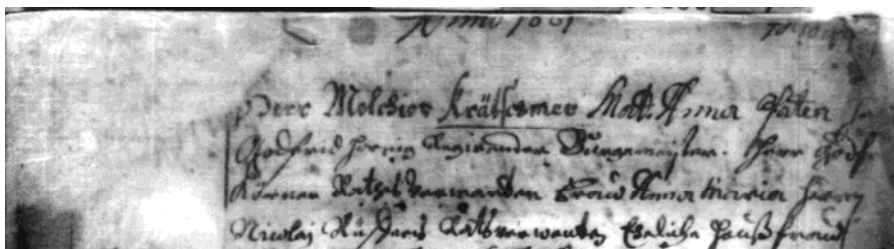 Anno 1661
Herr Melchior Krätschmer Mat. Anna Paten
Godfrid Hornig Regirender Burgemeister. Herr
Körner Rathsverwanten Fraw Anna Maria Herrn
Nicolaj Rathsverwanten Eheliche Haußfraw